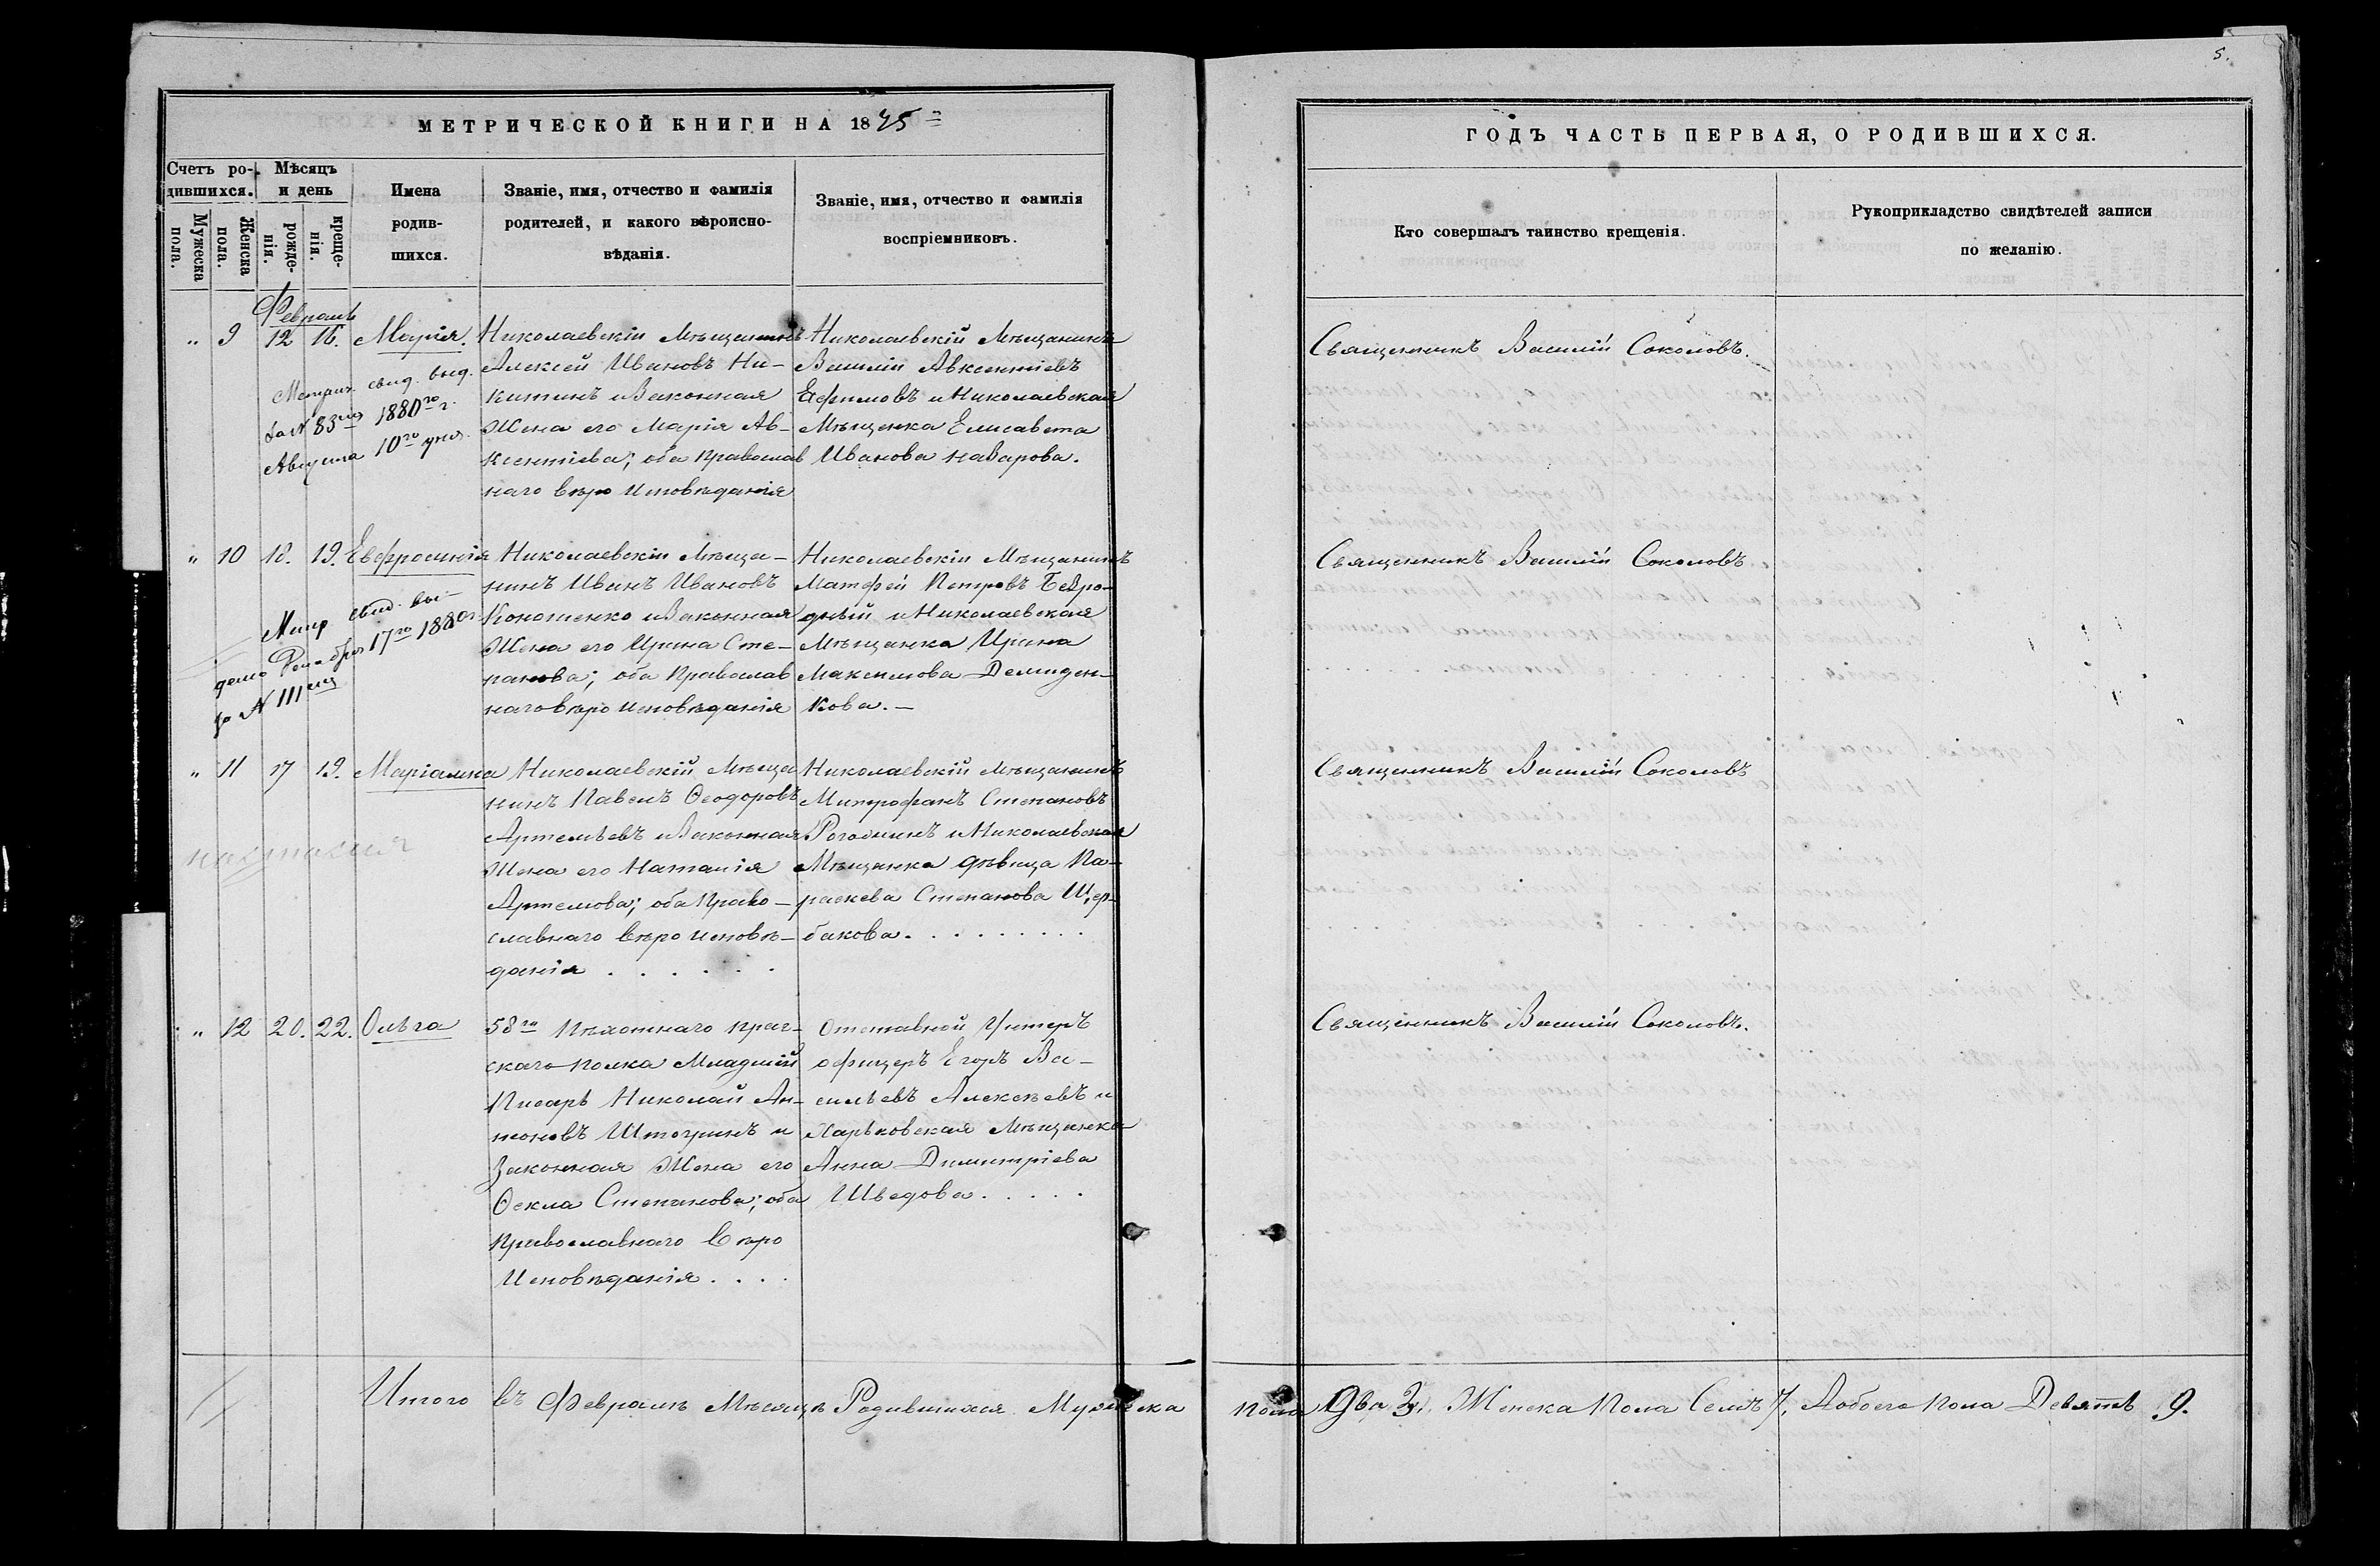 5.
МЕТРИЧЕСКОЙ КНИГИ НА 1875
ГОДЪ ЧАСТЬ ПЕРВАЯ, О РОДИВШИХСЯ.
Счетъ ро-
дившихся.
Мѣсяцъ
и день
Мужеска
пола.
Женска
пола.
рожде-
нія.
креще-
нія.
Имена
родив-
шихся.
Званіе, имя, отчество и фамилія
родителей, и какого вѣроиспо-
вѣданія.
Званіе, имя, отчество и фамилія
воспріемниковъ.
Кто совершалъ таинство крещенія.
Рукоприкладство свидѣтелей записи
по желанію.
Февраль
" 9 12 16. Марія.
Метрич. свид. выд.
за N 83 1880 го г.
Августа 10 го дня.
Николаевскій Мѣщанинъ
Алексей Ивановъ Ни-
китинъ и Законная
Жена его Марія Ав-
ксентіева; оба православ
наго вѣро исповѣданія
Николаевскій Мѣщанинъ
Василій Авксентіевъ
Ефимовъ и Николаевская
Мѣщанка Елисавета
Иванова Назарова.
Священникъ Василій Соколовъ.
" 10 18. 19. Евфросинія
Метр свид. вы-
дано Декабря 17 го 1880 г.
за N 111
Николаевскій Мѣща-
нинъ Иванъ Ивановъ
Кононенко и Законная
Жена его Ирина Сте-
панова; оба Православ
наго вѣро исповѣданія
Николаевскій Мѣщанинъ
Матфей Петровъ Безро-
дный и Николаевская
Мѣщанка Ирина
Максимова Демиден-
кова. —
Священникъ Василій Соколовъ
" 11 17 19. Маріамна
Николаевскій Мѣща
нинъ Павелъ Ѳеодоровъ
Артемьевъ и Законная
Жена его Наталія
Артемова; оба Право-
славнаго вѣро исповѣ-
данія . . . . . .
Николаевскій Мѣщанинъ
Митрофанъ Степановъ
Рогозинъ и Николаевская
Мѣщанка дѣвица Па-
раскева Степанова Щер-
бакова. . . . . . . . .
Священникъ Василій Соколовъ
" 12 20. 22. Ольга
58 го Пѣхотнаго праг-
скаго полка Младшій
Писарь Николай Ан-
тоновъ Штогринъ и
Законная Жена его
Ѳекла Степанова; оба
Православнаго Вѣро
Исповѣданія. . . .
Отставной Унтеръ
офицеръ Егоръ Ва-
сильевъ Алексѣевъ и
Харьковская Мѣщанка
Анна Димитріева
Шведова. . . . .
Священникъ Василій Соколовъ.
Итого въ Февралѣ Мѣсяцѣ Родившихся Мужеска пола Два 2. Женска Пола Семь 7, А обоего пола Девять 9.